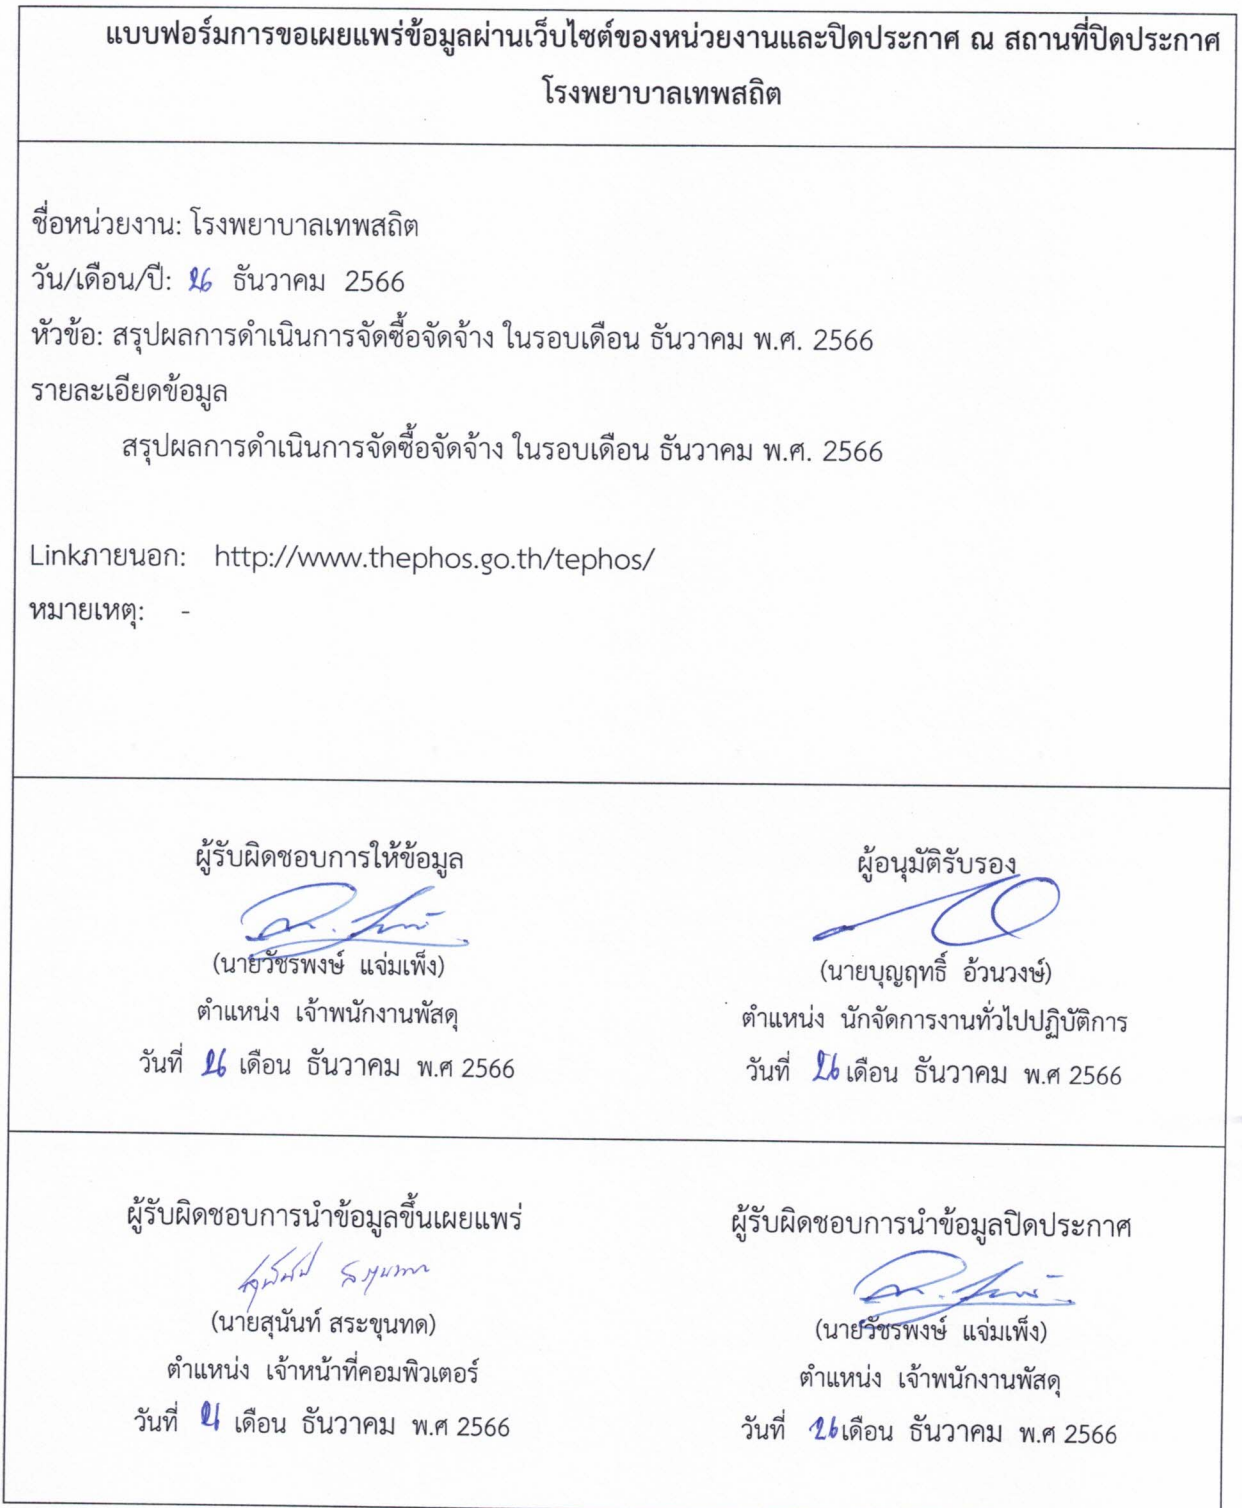 แบบฟอร์มการขอเผยแพร่ข้อมูลผ่านเว็บไซต์ของหน่วยงานและปิดประกาศ ณ สถานที่ปิดประกาศ
โรงพยาบาลเทพสถิต
ชื่อหน่วยงาน: โรงพยาบาลเทพสถิต
วัน/เดือน/ปี: ธันวาคม 2566
หัวข้อ: สรุปผลการดำเนินการจัดซื้อจัดจ้าง ในรอบเดือน ธันวาคม พ.ศ. 2566
รายละเอียดข้อมูล
สรุปผลการดำเนินการจัดซื้อจัดจ้าง ในรอบเดือน ธันวาคม พ.ศ. 2566
Linkภายนอก: http://www.thephos.go.th/tephos/
หมายเหตุ: -
ผู้รับผิดชอบการให้ข้อมูล
(นายวัชรพงษ์ แจ่มเพ็ง)
ตำแหน่ง เจ้าพนักงานพัสดุ
วันที่ เดือน ธันวาคม พ.ศ 2566
ผู้อนุมัติรับรอง
(นายบุญฤทธิ์ อ้วนวงษ์)
ตำแหน่ง นักจัดการงานทั่วไปปฏิบัติการ
วันที่ เดือน ธันวาคม พ.ศ 2566
ผู้รับผิดชอบการนำข้อมูลขึ้นเผยแพร่
(นายสุนันท์ สระขุนทด)
ตำแหน่ง เจ้าหน้าที่คอมพิวเตอร์
วันที่ เดือน ธันวาคม พ.ศ 2566
ผู้รับผิดชอบการนำข้อมูลปิดประกาศ
(นายวัชรพงษ์ แจ่มเพ็ง)
ตำแหน่ง เจ้าพนักงานพัสดุ
วันที่ เดือน ธันวาคม พ.ศ 2566